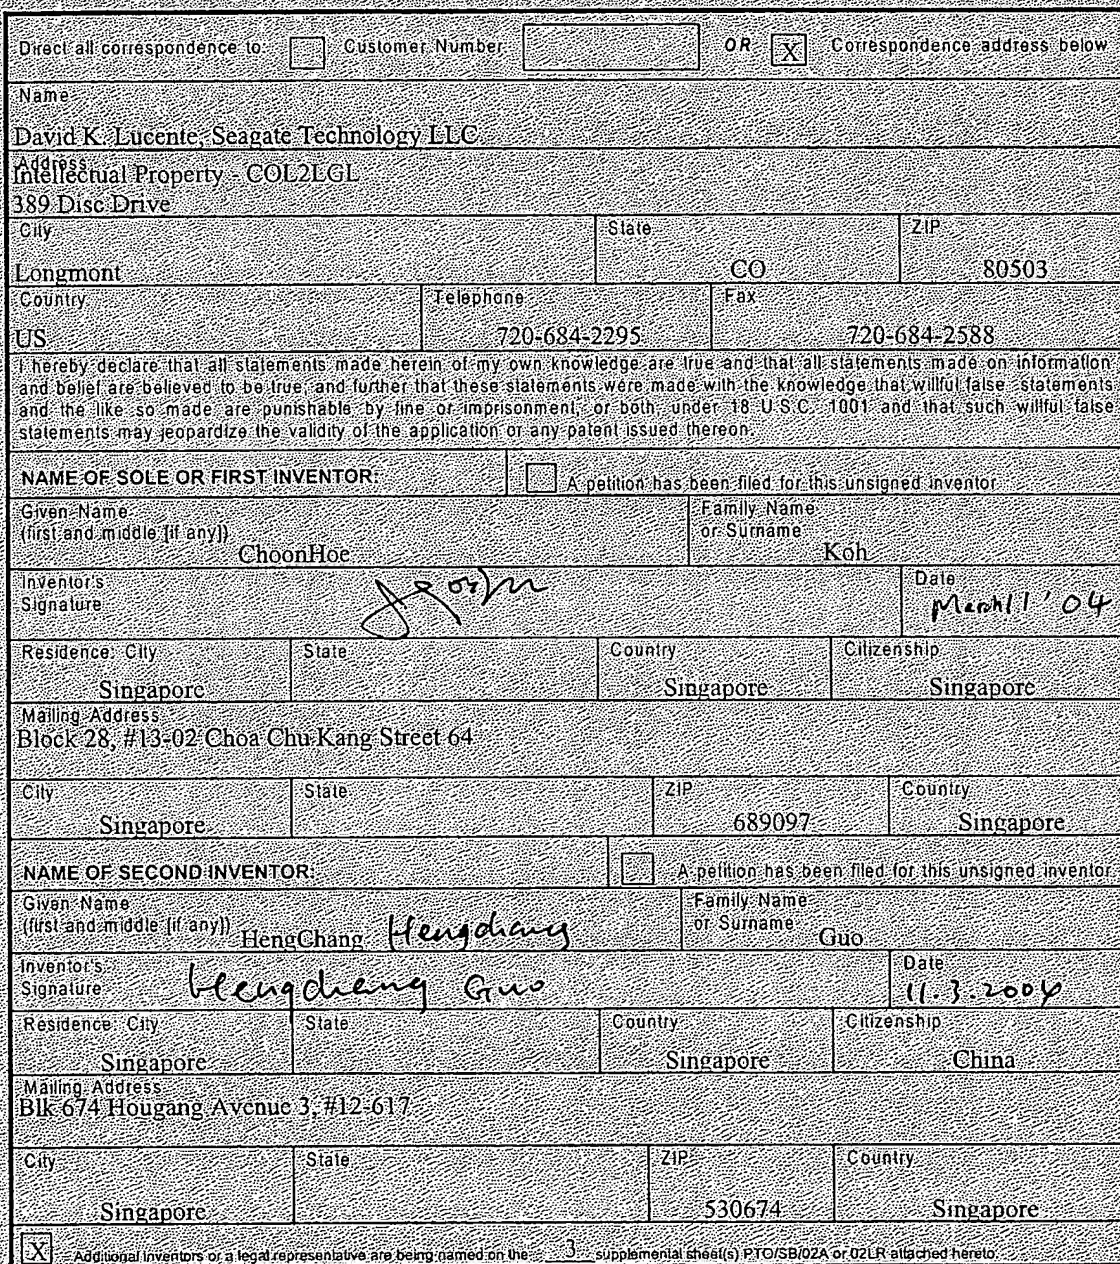 Direct all correspondence to: Customer Number OR X Correspondence address below
Name
David K. Lucente, Seagate Technology LLC
Address
Intellectual Property - COL2LGL
389 Disc Drive
City State ZIP
Longmont CO 80503
Country Telephone Fax
US 720-684-2295 720-684-2588
I hereby declare that all statements made herein of my own knowledge are true and that all statements made on information
and belief are believed to be true, and further that these statements were made with the knowledge that willful false statements
and the like so made are punishable by fine or imprisonment, or both, under 18 U.S.C. 1001 and that such willful false
statements may jeopardize the validity of the application or any patent issued thereon.
NAME OF SOLE OR FIRST INVENTOR: A petition has been filed for this unsigned inventor
Given Name Family Name
(first and middle [if any]) or Surname
ChoonHoe Koh
Inventor's Date
Signature March 11 '04
Residence: City State Country Citizenship
Singapore Singapore Singapore
Mailing Address
Block 28, #13-02 Choa Chu Kang Street 64
City State ZIP Country
Singapore 689097 Singapore
NAME OF SECOND INVENTOR: A petition has been filed for this unsigned inventor
Given Name Family Name
(first and middle [if any]) HengChang Hengchang or Surname Guo
Inventor's Date
Signature Hengchang Guo 11.3.2004
Residence: City State Country Citizenship
Singapore Singapore China
Mailing Address
Blk 674 Hougang Avenue 3, #12-617
City State ZIP Country
Singapore 530674 Singapore
X Additional inventors or a legal representative are being named on the 3 supplemental sheet(s) PTO/SB/02A or 02LR attached hereto.